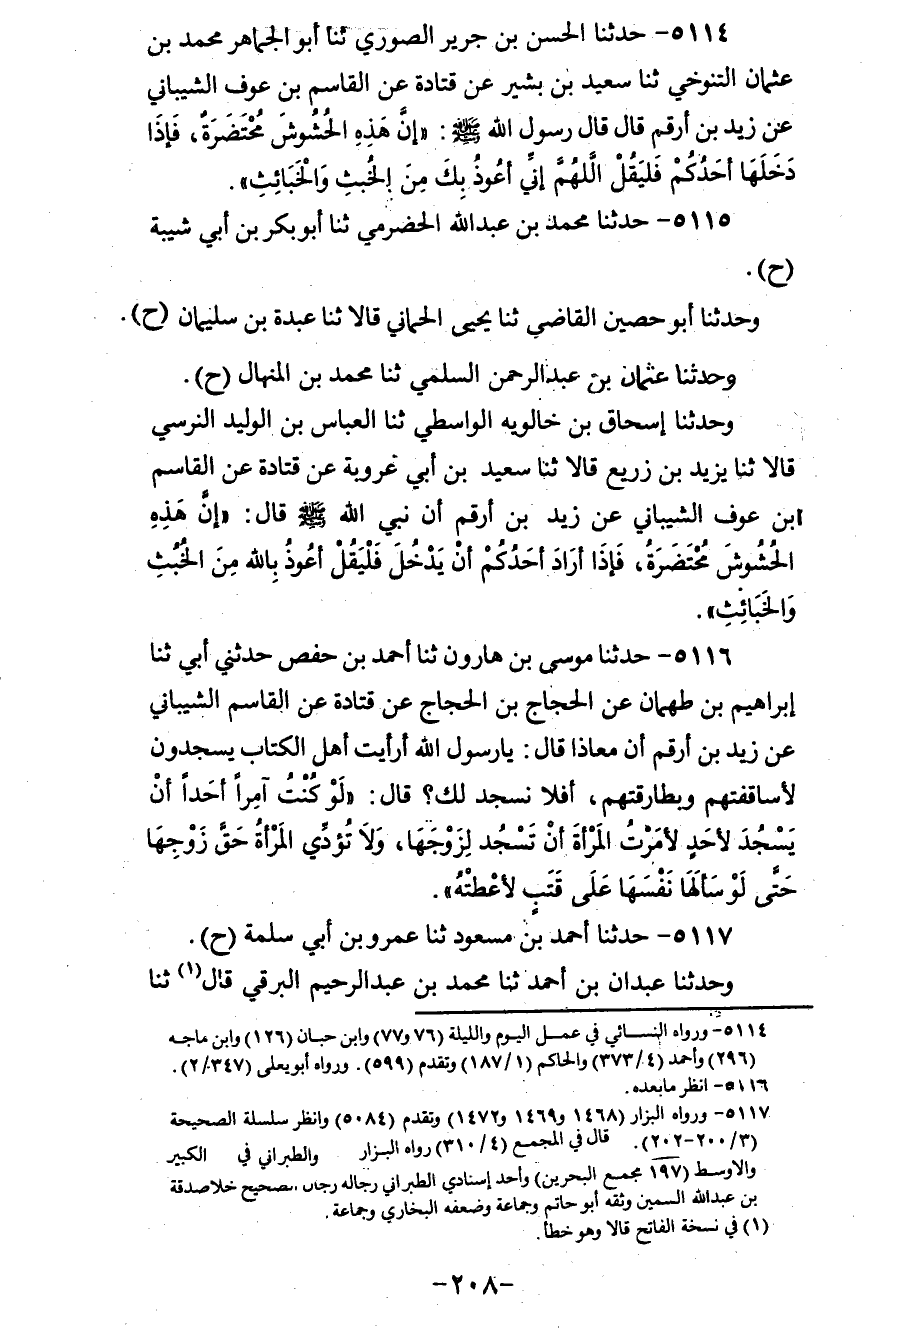 ٥١١٤- حدثنا الحسن بن جرير الصوري ثنا أبو الجماهر محمد بن
عثمان التنوخي ثنا سعيد بن بشير عن قتادة عن القاسم بن عوف الشيباني
عن زيد بن أرقم قال قال رسول الله ﷺ : «إنَّ هَذِهِ الحُشُوشَ مُحْتَضَرَةٌ، فَإذَا
دَخَلَهَا أحَدُكُمْ فَليَقُلْ الَّلهُمَّ إنيِّ أعُوذُ بِكَ مِنَ الخُبثِ وَالْخَبَائِثِ».
٥١١٥- حدثنا محمد بن عبدالله الحضرمي ثنا أبو بكر بن أبي شيبة
(ح).
وحدثنا أبو حصين القاضي ثنا يحيى الحماني قالا ثنا عبدة بن سليمان (ح).
وحدثنا عثمان بن عبدالرحمن السلمي ثنا محمد بن المنهال (ح).
وحدثنا إسحاق بن خالويه الواسطي ثنا العباس بن الوليد النرسي
قالا ثنا يزيد بن زريع قالا ثنا سعيد بن أبي عروبة عن قتادة عن القاسم
ابن عوف الشيباني عن زيد بن أرقم أن نبي الله ﷺ قال: «إنَّ هَذِهِ
الحُشُوشَ مُحْتَضَرَةُ، فَإذَا أرَادَ أحَدُكُمْ أنْ يَدْخُلَ فَلْيَقُلْ أعُوذُ بِالله مِنَ الخُبُثِ
وَالخَبَائِثِ».
٥١١٦- حدثنا موسى بن هارون ثنا أحمد بن حفص حدثني أبي ثنا
إبراهيم بن طهمان عن الحجاج بن الحجاج عن قتادة عن القاسم الشيباني
عن زيد بن أرقم أن معاذا قال: يارسول الله أرأيت أهل الكتاب يسجدون
لأساقفتهم وبطارقتهم، أفلا نسجد لك؟ قال: «لَوْ كُنْتُ آمِراً أحَداً أنْ
يَسْجُدَ لأحَدٍ لأمَرْتُ المَرْأةَ أنْ تَسْجُد لِزَوْجَهَا، وَلاَ تُؤدِّي المَرْأةُ حَقَّ زَوْجِهَا
حَتَّى لَوْ سَألَهَا نَفْسَهَا عَلَى قَتَبٍ لأعْطتْهُ».
٥١١٧- حدثنا أحمد بن مسعود ثنا عمرو بن أبي سلمة (ح).
وحدثنا عبدان بن أحمد ثنا محمد بن عبدالرحيم البرقي قال(١) ثنا
٥١١٤- ورواه النسائي في عمل اليوم والليلة (٧٦ و٧٧) وابن حبان (١٢٦) وابن ماجه
(٢٩٦) وأحمد (٤/٣٧٣) والحاكم (١/١٨٧) وتقدم (٥٩٩). ورواه أبو يعلى (٢/٣٤٧).
٥١١٦- انظر مابعده.
٥١١٧- ورواه البزار (١٤٦٨ و١٤٦٩ و١٤٧٢) وتقدم (٥٠٨٤) وانظر سلسلة الصحيحة
(٣/٢٠٠-٢٠٢). قال في المجمع (٤/٣١٠) رواه البزار والطبراني في الكبير
والاوسط (١٩٧ مجمع البحرين) وأحد إسنادي الطبراني رجاله رجال الصحيح خلا صدقة
بن عبدالله السمين وثقه أبو حاتم وجماعة وضعفه البخاري وجماعة.
(١) في نسخة الفاتح قالا وهو خطأ.
-٢٠٨-